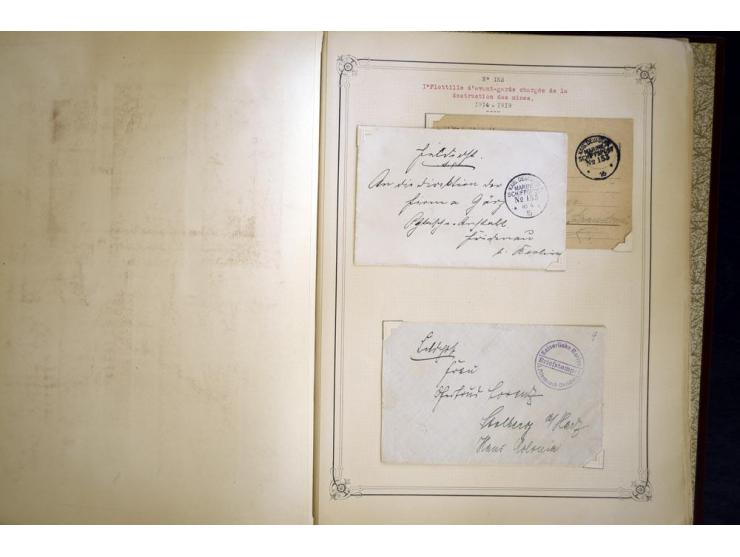 N° 153
1°Flottille d'avant-garde chargée de la
destruction des mines.
1914 - 1919
KAIS. DEUTSCHE
MARINE-
SCHIFFSPOST
No 153
16
Feldpst.
An die Direktion der
Firma Görz
Optische-Anstalt
Friedenau
b. Berlin
MARINE-
SCHIFFSPOST
No 153
Feldpst
Frau
Gertrud Lorenz
Stolberg a/Harz
Haus Colonia
Kaiserliche Marine
Briefstempel